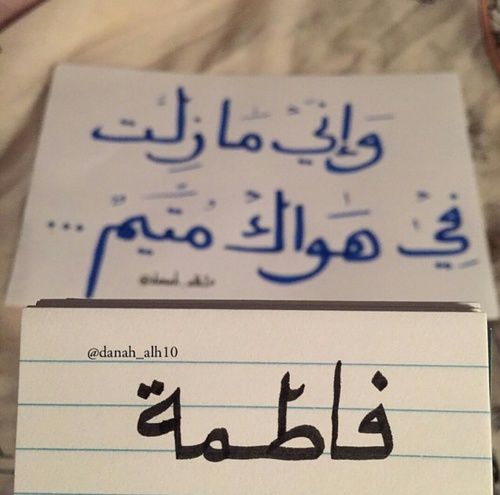 وَإِنّيْ مَا زِلْت
فِيْ هَواكْ مُتَيمّ ...
@danah_alh10
فاطمة